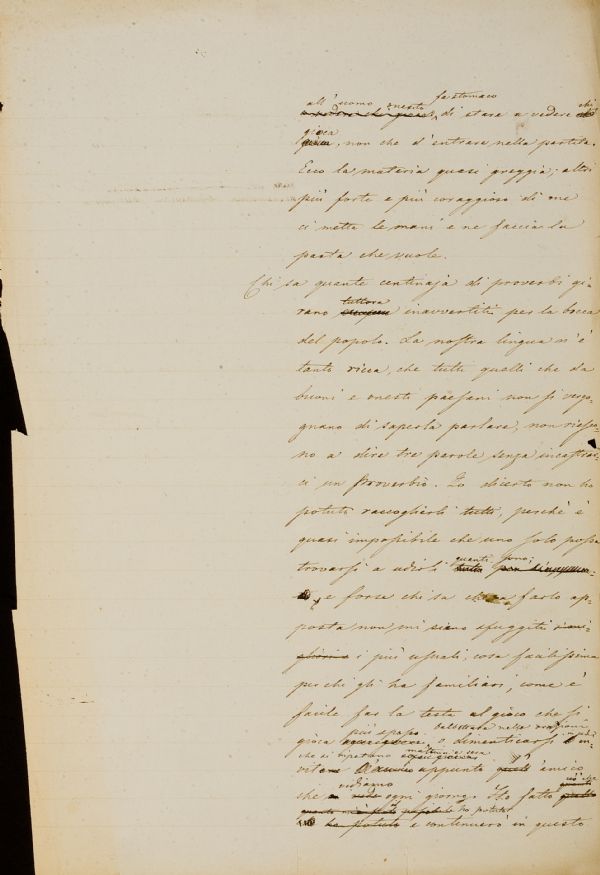 all'uomo onesto fa stomaco
di stare a vedere chi
gioca, non che d'entrare nella partita.
Ecco la materia quasi greggia; altri
più forte e più coraggioso di me
ci metta le mani e ne faccia la
pasta che vuole.
Chi sa quante centinaja di proverbi gi-
rano tuttora inavvertiti per la bocca
del popolo. La nostra lingua n'è
tanto ricca, che tutti quelli che da
buoni e onesti paesani non si vergo-
gnano di saperla parlare, non riesco-
no a dire tre parole senza incastrar-
ci un Proverbio. Io dicerto non ho
potuto raccoglierli tutti, perché è
quasi impossibile che uno solo possa
trovarsi a udirli tutti quanti sono;
e forse chi sa che a farlo ap-
posta non mi siano sfuggiti
i più usuali, cosa facilissima
per chi gli ha familiari, come è
facile far la testa al gioco che si
gioca più spesso, o dimenticarsi
che si ripetono mattina e sera
appunto l'amico
che vediamo ogni giorno. Ho fatto ciò che
ho potuto
e continuerò in questo